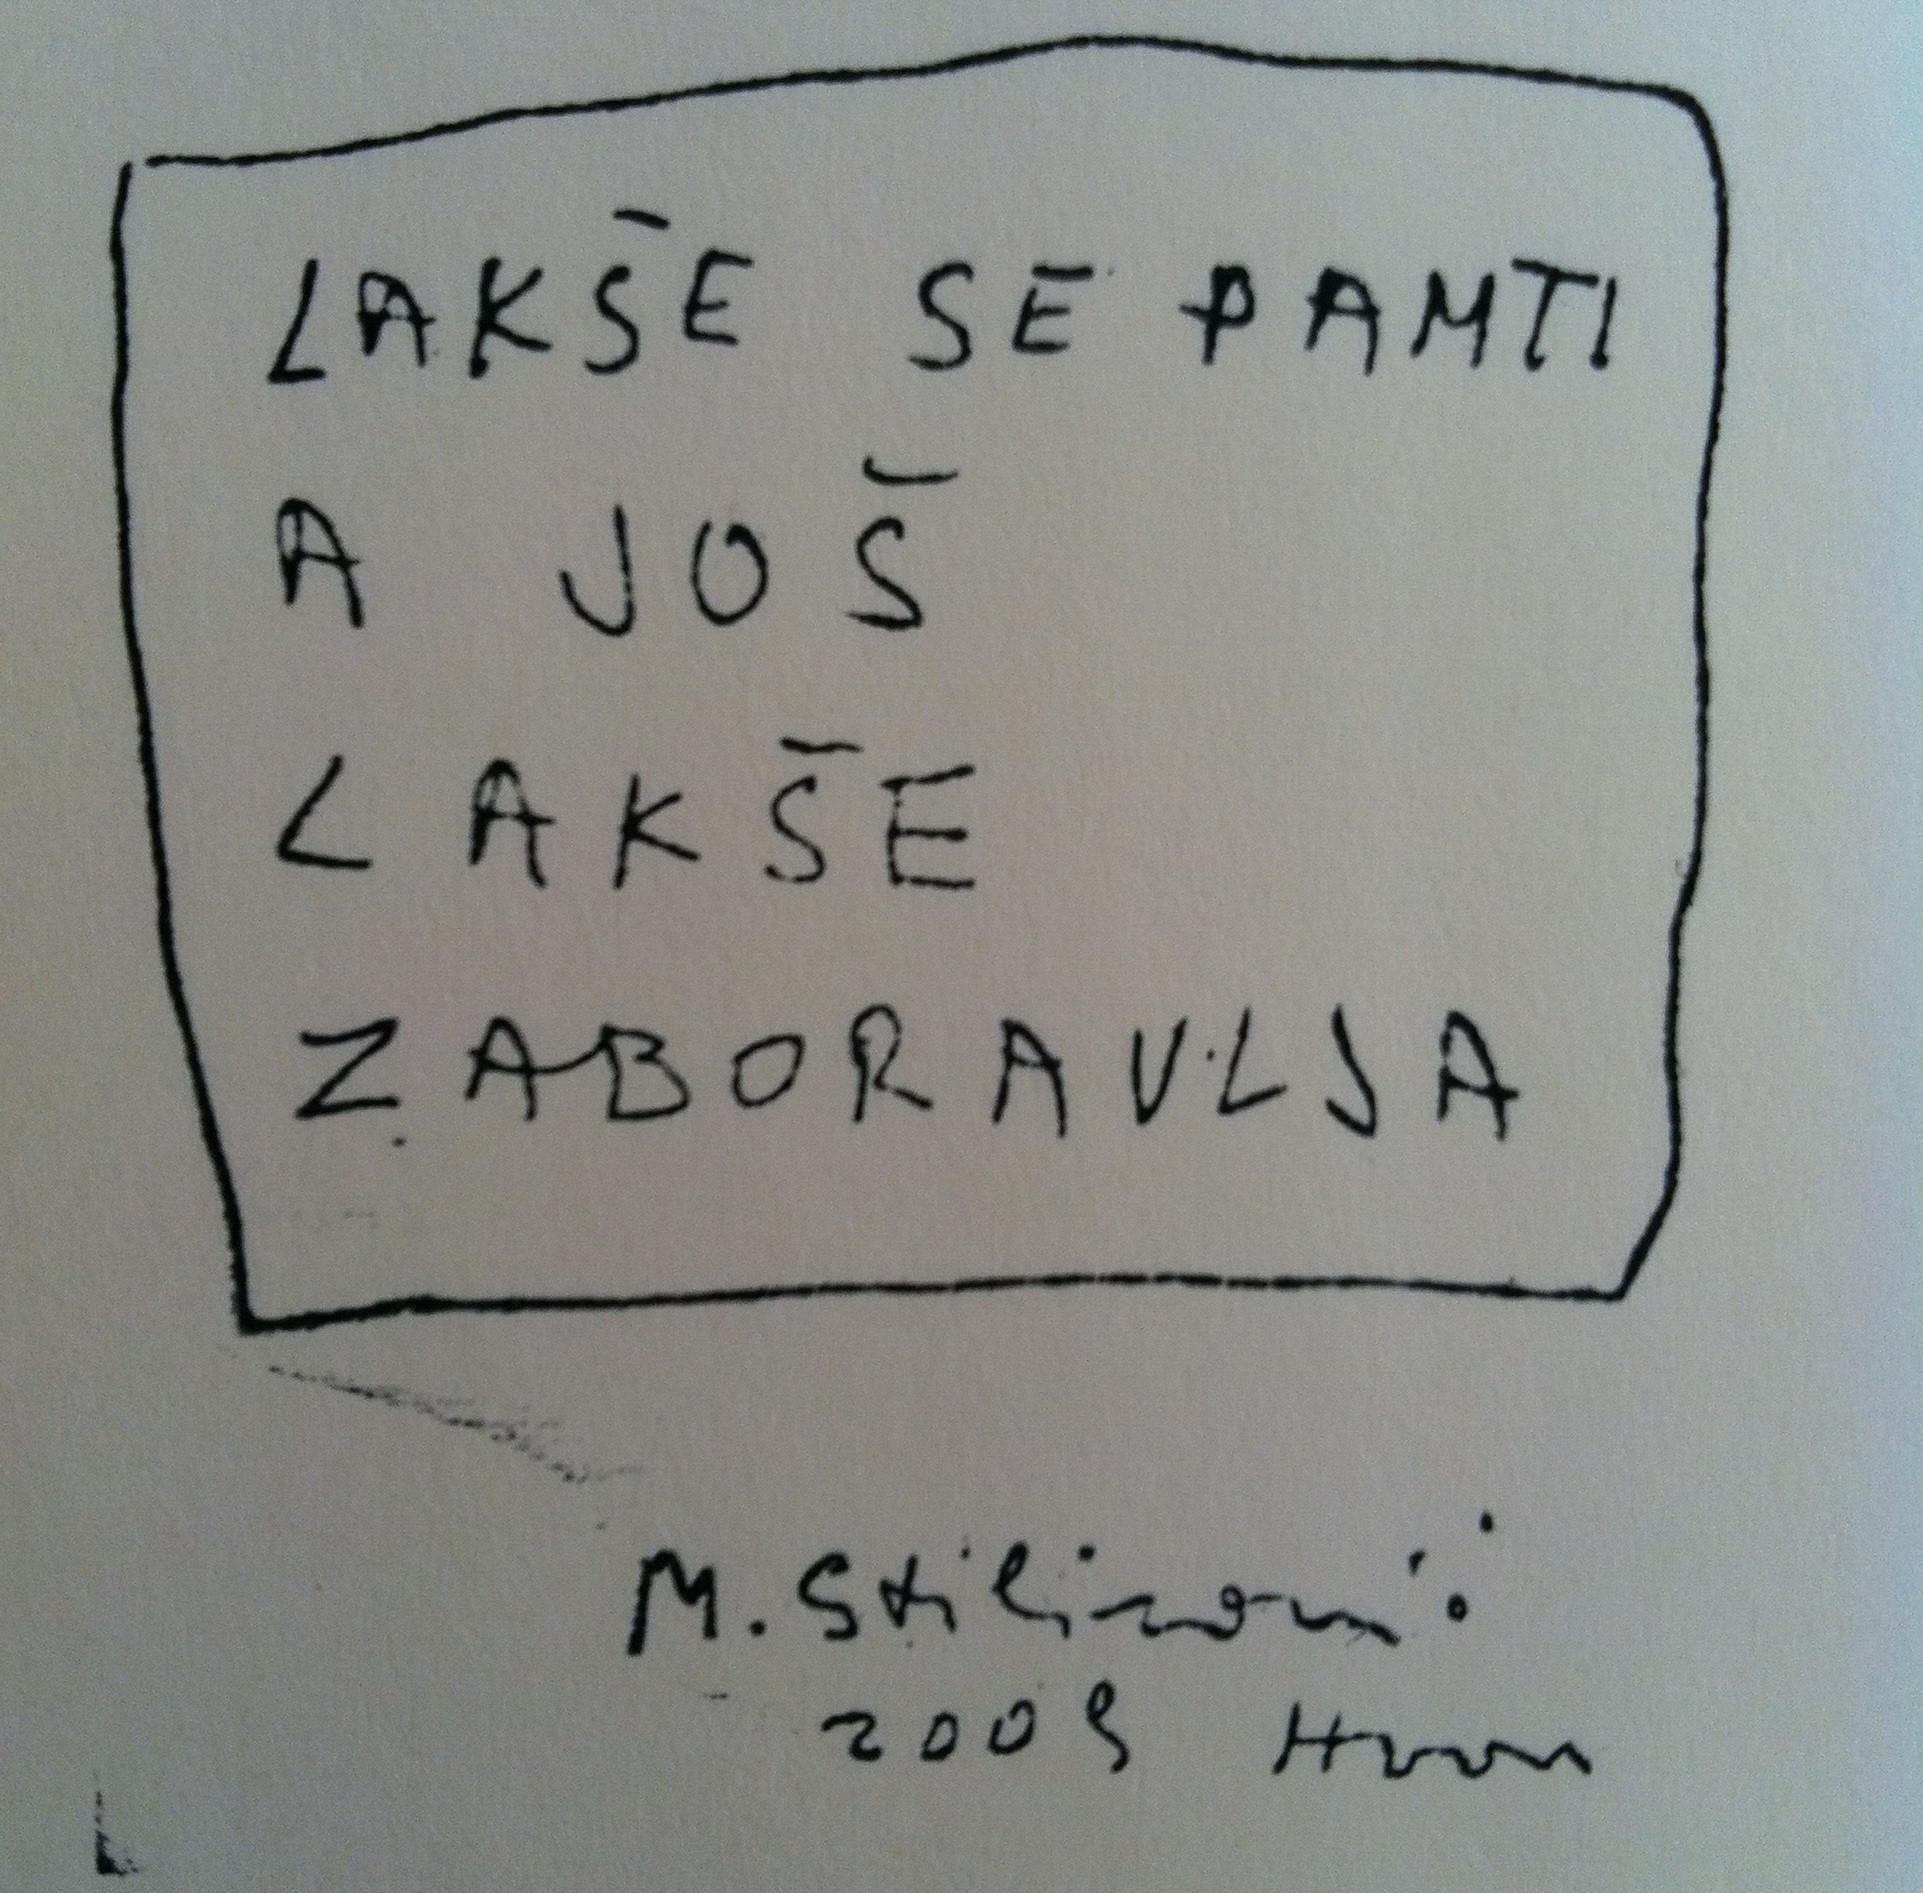 LAKŠE SE PAMTI
A JOŠ
LAKŠE
ZABORAVLJA
M. Stilinović
2009 Hvar